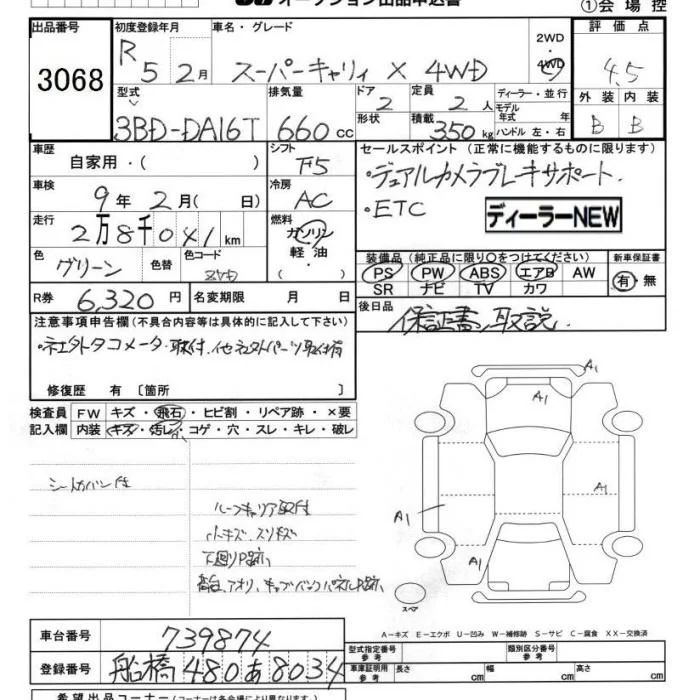 オークション出品申込書
①会場控
出品番号 初度登録年月 車名・グレード 2WD・4WD 評価点
3068 R5 2月 スーパーキャリィ X 4WD 4.5
型式 排気量 ドア 2 定員 2人 ディーラー・並行 外装 内装
3BD-DA16T 660cc 形状 積載 350kg モデル年式 年 ハンドル 左・右 B B
車歴 自家用・( ) シフト F5 セールスポイント (正常に機能するものに限ります)
車検 9年 2月( 日) 冷房 AC ・デュアルカメラブレーキサポート.
走行 2万8千041km 燃料 ガソリン・軽油・( ) ・ETC ディーラーNEW
色 グリーン 色替 色コード 装備品(純正品に限り○をつけてください) 新車保証書
PS PW ABS エアB AW 有・無
SR ナビ TV カワ
R券 6,320円 名変期限 月 日 後日品 保証書、取説.
注意事項申告欄(不具合内容等は具体的に記入して下さい)
・社外タコメーター取付.他社外パーツ取付有
修復歴 有〔箇所 〕
検査員 FW キズ・飛石・ヒビ割・リペア跡・×要
記入欄 内装 キズ・汚レ・コゲ・穴・スレ・キレ・破レ
シートカバー付
ルーフキャリア取付
小キズ.スリキズ
下廻りP跡.
荷台.アオリ.キャブバックパネルP跡.
A1
A1
A1
A1
A1
スペア
A-キズ E-エクボ U-凹み W-補修跡 S-サビ C-腐食 XX-交換済
車台番号 739874 型式指定番号 参考 類別区分番号 参考
登録番号 船橋 480 あ 8034 車庫証明用 参考 長さ cm 幅 cm 高さ cm
希望出品コーナー(コーナーは各会場により異なります)